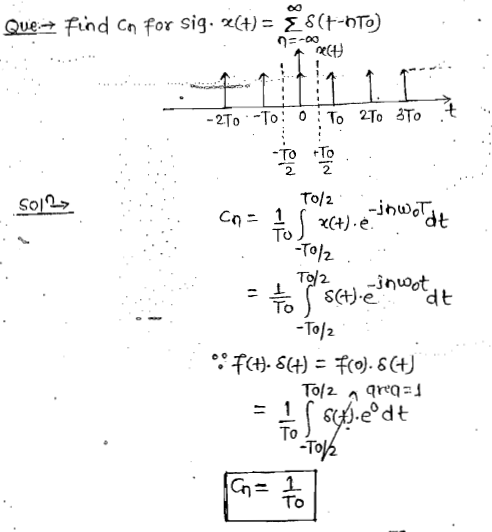 Que:→ Find Cn for sig. x(t) = ∞Σn=-∞ δ(t-nT0)
x(t)
-2T0 -T0 0 T0 2T0 3T0 t
-T0/2 +T0/2
Soln→
Cn = 1/T0 ∫-T0/2^T0/2 x(t).e^-jnω0T dt
= 1/T0 ∫-T0/2^T0/2 δ(t).e^-jnω0t dt
∵ f(t).δ(t) = f(0).δ(t)
= 1/T0 ∫-T0/2^T0/2 δ(t).e^0 dt area=1
Cn = 1/T0